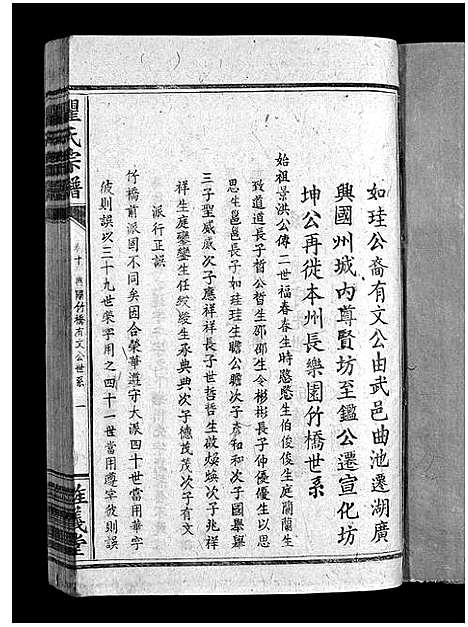 如珪公裔有文公由武邑曲池遷湖廣
興國州城內尊賢坊至鑑公遷宣化坊
坤公再徙本州長樂園竹橋世系
始祖景洪公傳二世福春春生時愍愍生伯俊俊生庭蘭蘭生
致道道長子晢公晢生邵邵生令彬彬長子仲優優生以思
思生邕邕長子如珪珪生瞻公瞻次子彥和和次子國舉舉
三子聖威威次子應祥祥長子世哲哲生微煥煥次子兆祥
祥生庭鑾鑾生任統統生承典典次子德茂茂次子有文
派行正誤
竹橋前派固不同矣因合榮華遵守大派四十世當用華字
彼則誤以三十九世榮字用之四十一世當用遵字彼則誤
瞿氏宗譜
卷十 興國竹橋有文公世系 一